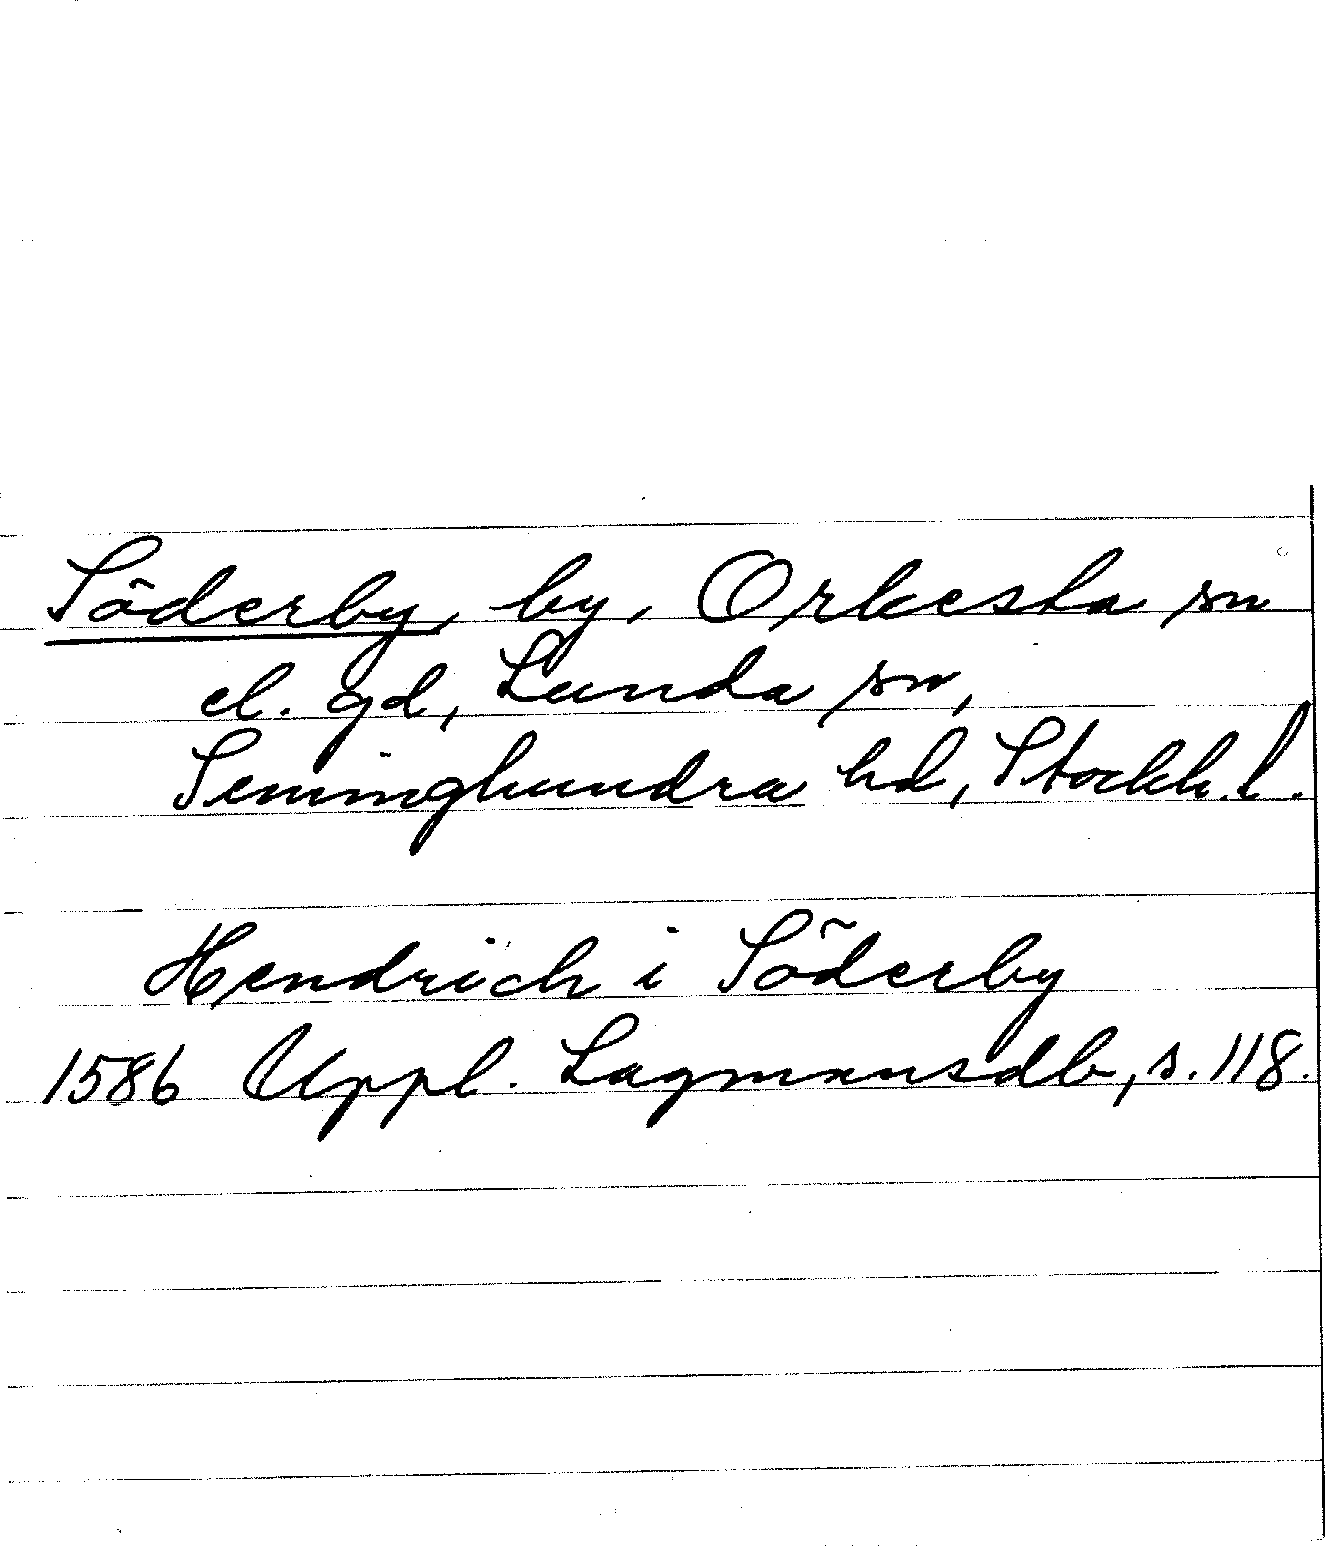 Söderby by, Orkesta sn
el. gd, Lunda sn,
Seminghundra hd, Stockh. l.
Hendrich i Söderby
1586 Uppl. Lagmansdb, s. 118.